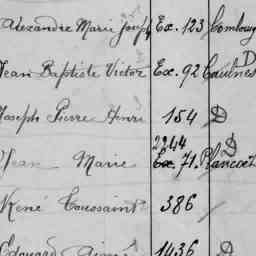 Alexandre Marie Joseph Ex. 123 Combourg
Jean Baptiste Victor Ex. 92 Caulnes D
Joseph Pierre Henri 154 D
Jean Marie 2244 Ex. 71. Plancoët D
René Toussaint 386 /
Edouard Aimé 1436 D